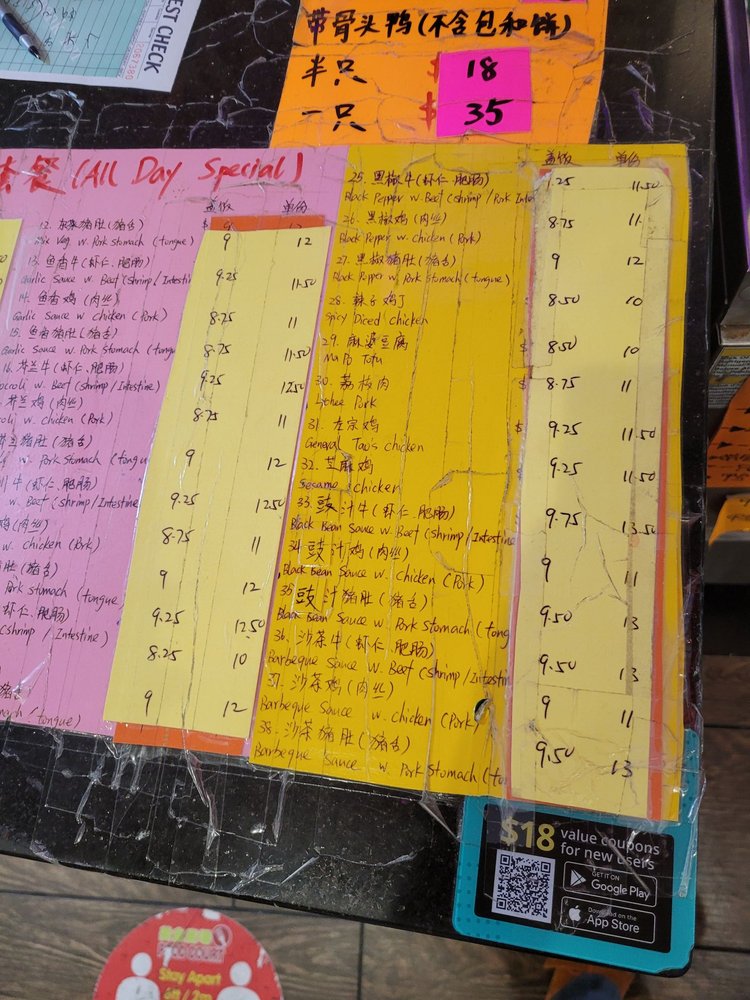 EST CHECK
2087380
带骨头鸭(不含包和饼)
半只 $ 18
一只 $ 35
套餐 (All Day Special)
盖饭 单份
12. 猪肚(猪舌)
Mix Veg w. Pork stomach (tongue)
9 12
13. 鱼香牛(虾仁.肥肠)
Garlic Sauce w. Beef (shrimp/Intestin
9.25 11.50
14. 鱼香鸡(肉丝)
Garlic Sauce w chicken (Pork)
8.75 11
15. 鱼香猪肚(猪舌)
Garlic Sauce w. Pork Stomach (tongu
8.75 11.50
16. 芥兰牛(虾仁.肥肠)
ocroli w. Beef (shrimp/Intestine)
9.25 12.50
芥兰鸡(肉丝)
roli w. chicken (Pork)
8.75 11
芥兰猪肚(猪舌)
w. Pork Stomach (tongu
9 12
牛(虾仁.肥肠)
w. Beef (shrimp/Intestine
9.25 12.50
鸡(肉丝)
w. chicken (Pork)
8.75 11
肚(猪舌)
Pork stomach (tongue
9 12
虾仁.肥肠)
(shrimp / Intestine)
9.25 12.50
8.25 10
猪舌)
mach (tongue)
9 12
盖饭 单份
25. 黑椒牛(虾仁.肥肠)
Black Pepper w. Beef (shrimp/Pork Inte
.25 11.50
26. 黑椒鸡(肉丝)
Black Pepper w. chicken (Pork)
8.75 11
27. 黑椒猪肚(猪舌)
Black Pepper w. Pork Stomach (tongue)
9 12
28. 辣子鸡丁
Spicy Diced chicken
8.50 10
29. 麻婆豆腐
Ma Po Tofu
$ 8.50 10
30. 荔枝肉
Lythee Pork
$ 8.75 11
31. 左宗鸡
General Tao's chicken
$ 9.25 11.50
32. 芝麻鸡
Sesame chicken
9.25 11.50
33. 豉汁牛(虾仁.肥肠)
Black Bean Sauce w. Beef (shrimp/Intestine
9.75 13.50
34. 豉汁鸡(肉丝)
Black Bean Sauce w. chicken (Pork)
9 11
35. 豉汁猪肚(猪舌)
Black Bean Sauce w. Pork Stomach (tong
9.50 13
36. 沙茶牛(虾仁.肥肠)
Barbeque Sauce w. Beef (shrimp/Intestin
9.50 13
37. 沙茶鸡(肉丝)
Barbeque Sauce w. chicken (Pork)
9 11
38. 沙茶猪肚(猪舌)
Barbeque Sauce w. Pork Stomach (to
9.50 13
$18 value coupons
for new users
GET IT ON
Google Play
Download on the
App Store
FOOD COURT
Stay Apart
6ft / 2m